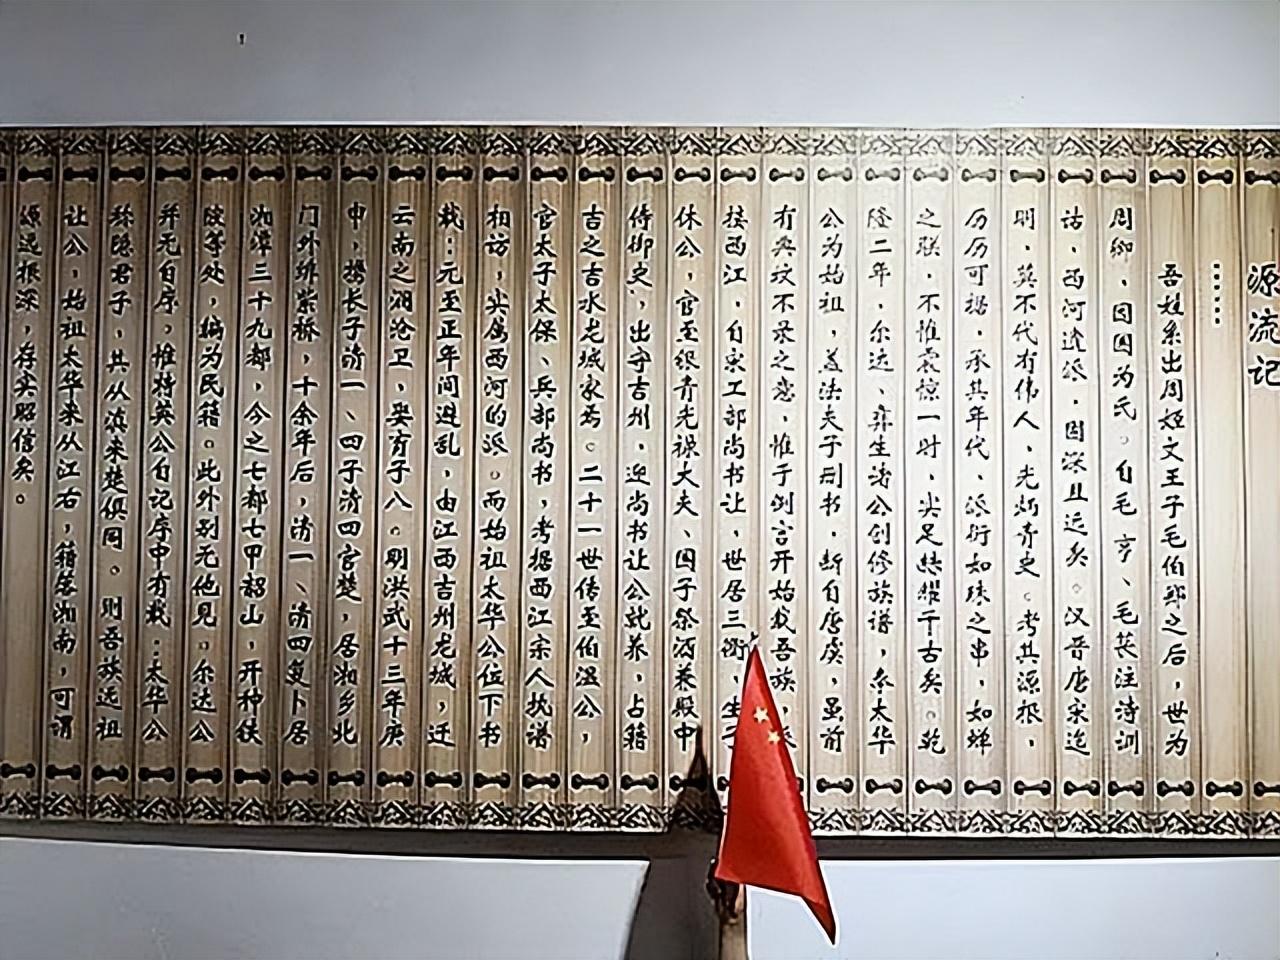 源流记
……
吾姓系出周姬文王子毛伯郑之后，世为
周卿，因国为氏。自毛亨、毛苌注诗训
诂，西河近派，固深且远矣。汉晋唐宋迄
明，英不代有伟人，光炳青史。考其源根，
历历可据，承其年代，派衍如珠之串，如蝉
之联，不惟震惊一时，尖足炫耀千古矣。乾
隆二年，尔达、弈生诸公创修族谱，奉太华
公为始祖，盖法夫子删书，断自唐虞，虽前
有典坟不录之意，惟于例言开始叙吾族，派
接西江，自宋工部尚书让，世居三衢，生子
休公，官至银青光禄大夫、国子祭酒兼殿中
侍御史，出守吉州，迎尚书让公就养，占籍
吉之吉水龙城家焉。二十一世传至伯温公，
官太子太保、兵部尚书，考据西江宗人执谱
相访，实属西河的派。而始祖太华公位下书
载：元至正年间避乱，由江西吉州龙城，迁
云南之澜沧卫，娶育子八。明洪武十三年庚
申，携长子清一、四子清四官楚，居湘乡北
门外绯紫桥，十余年后，清一、清四复卜居
湘潭三十九都，今之七都七甲韶山，开种铁
陂等处，编为民籍。此外别无他见。尔达公
并无自序，惟特英公自记序中有载：太华公
称隐君子，其从滇来楚俱同。则吾族远祖
让公，始祖太华来从江右，籍落湘南，可谓
源远根深，存实昭信矣。